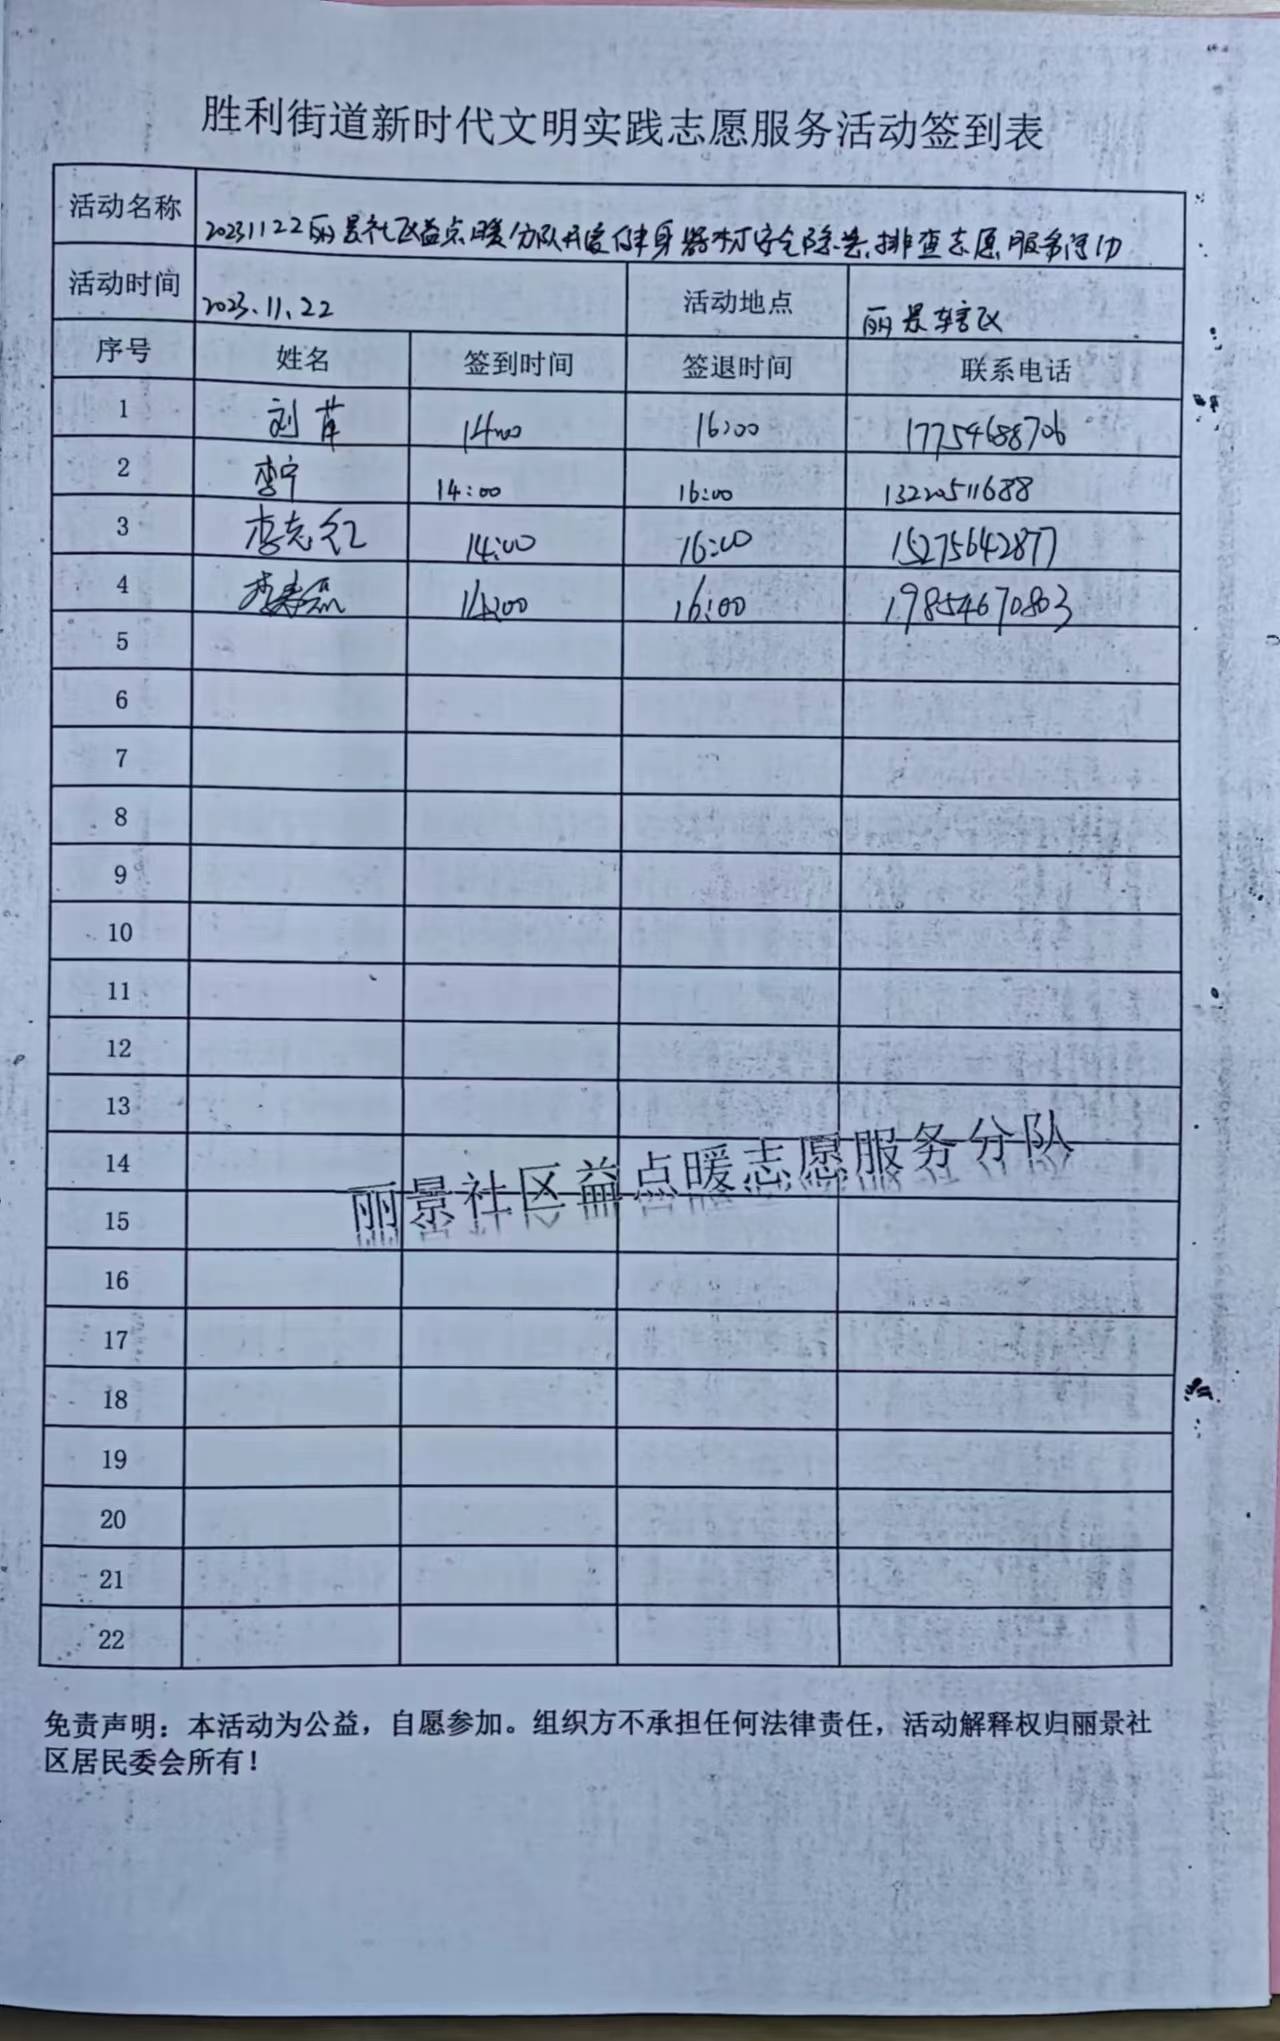 胜利街道新时代文明实践志愿服务活动签到表
活动名称 20231122丽景社区益点暖分队开展健身器材安全隐患排查志愿服务活动
活动时间 2023.11.22 活动地点 丽景辖区
序号 姓名 签到时间 签退时间 联系电话
1 刘 14:00 16:00 17754688706
2 李宁 14:00 16:00 13220511688
3 李志红 14:00 16:00 15275642877
4 李寿磊 14:00 16:00 19854670803
5
6
7
8
9
10
11
12
13
14
丽景社区益点暖志愿服务分队
15
16
17
18
19
20
21
22
免责声明：本活动为公益，自愿参加。组织方不承担任何法律责任，活动解释权归丽景社
区居民委会所有！